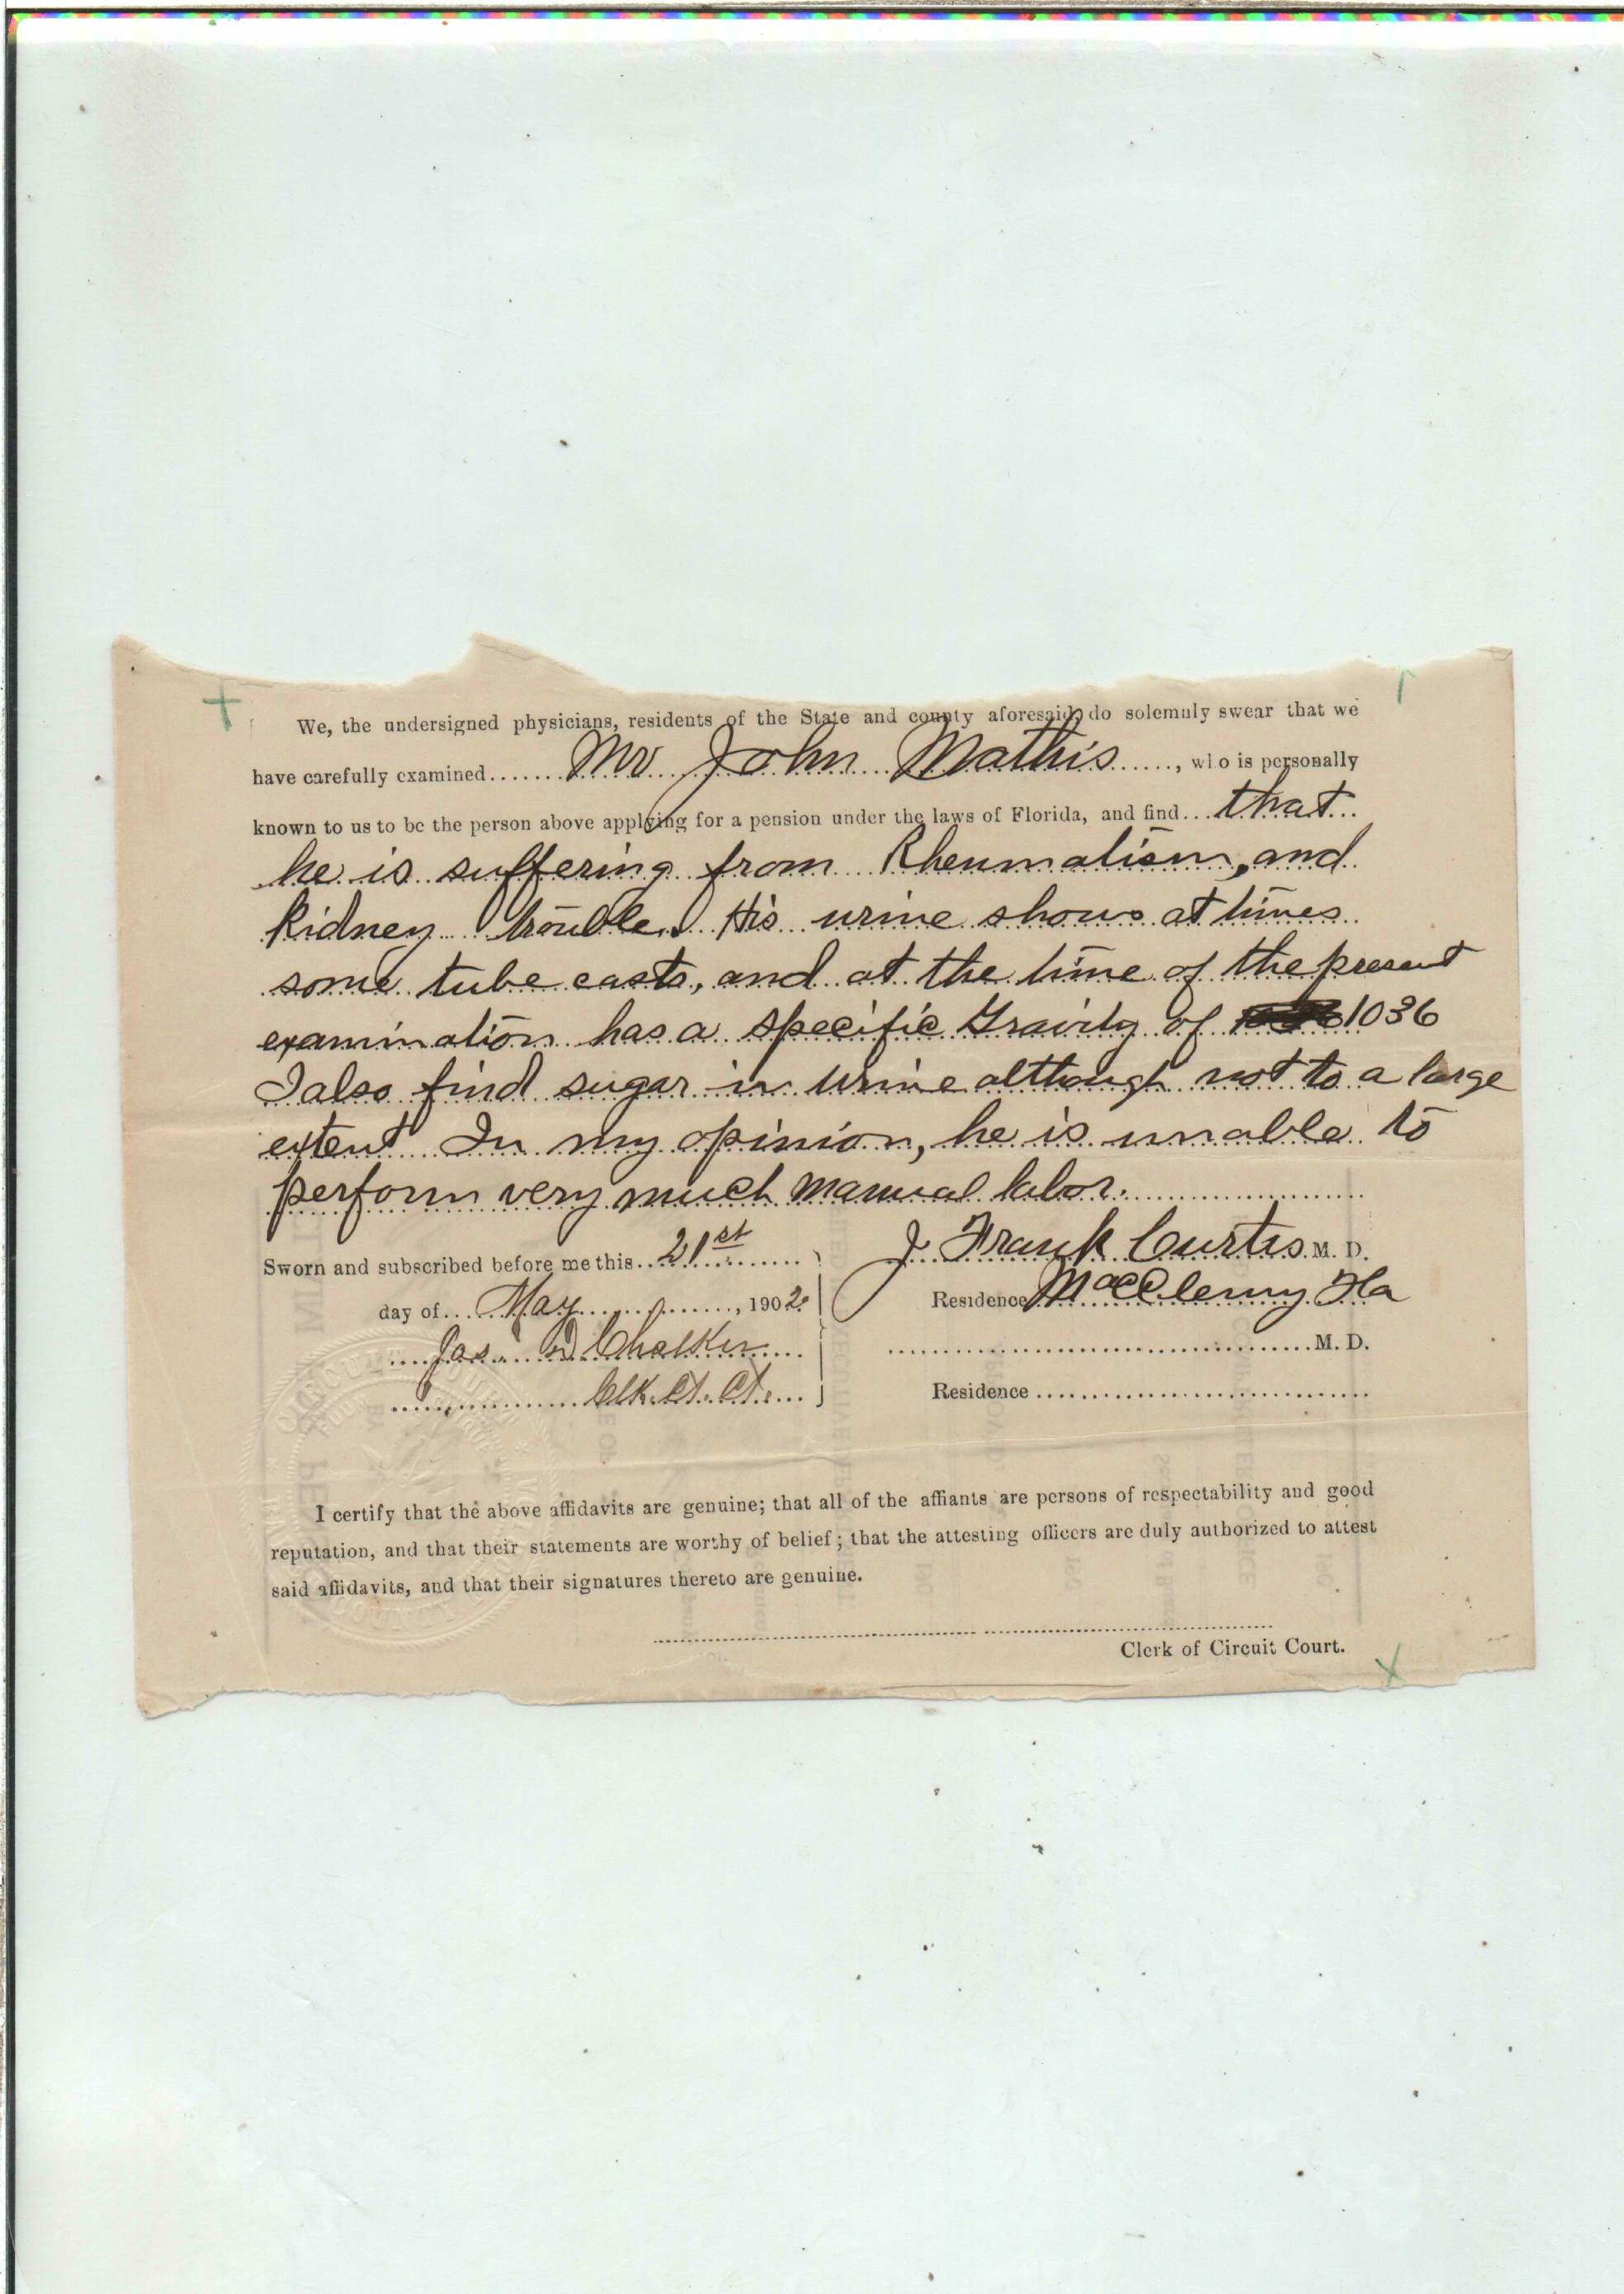 We, the undersigned physicians, residents of the State and county aforesaid, do solemnly swear that we
have carefully examined....... Mr John Mathis ......, who is personally
known to us to be the person above applying for a pension under the laws of Florida, and find... that...
he is suffering from Rheumatism, and
kidney trouble. His urine shows at times
some tube casts, and at the time of the present
examination has a specific Gravity of 1036
I also find sugar in urine although not to a large
extent In my opinion, he is unable to
perform very much manual labor.
Sworn and subscribed before me this.. 21st
J. Frank Curtis M. D.
day of.... May ........, 1902
Residence MacClenny Fla
Jas. D Chalker
M. D.
Clk. Ct. Ct.
Residence
I certify that the above affidavits are genuine; that all of the affiants are persons of respectability and good
reputation, and that their statements are worthy of belief; that the attesting officers are duly authorized to attest
said affidavits, and that their signatures thereto are genuine.
Clerk of Circuit Court.